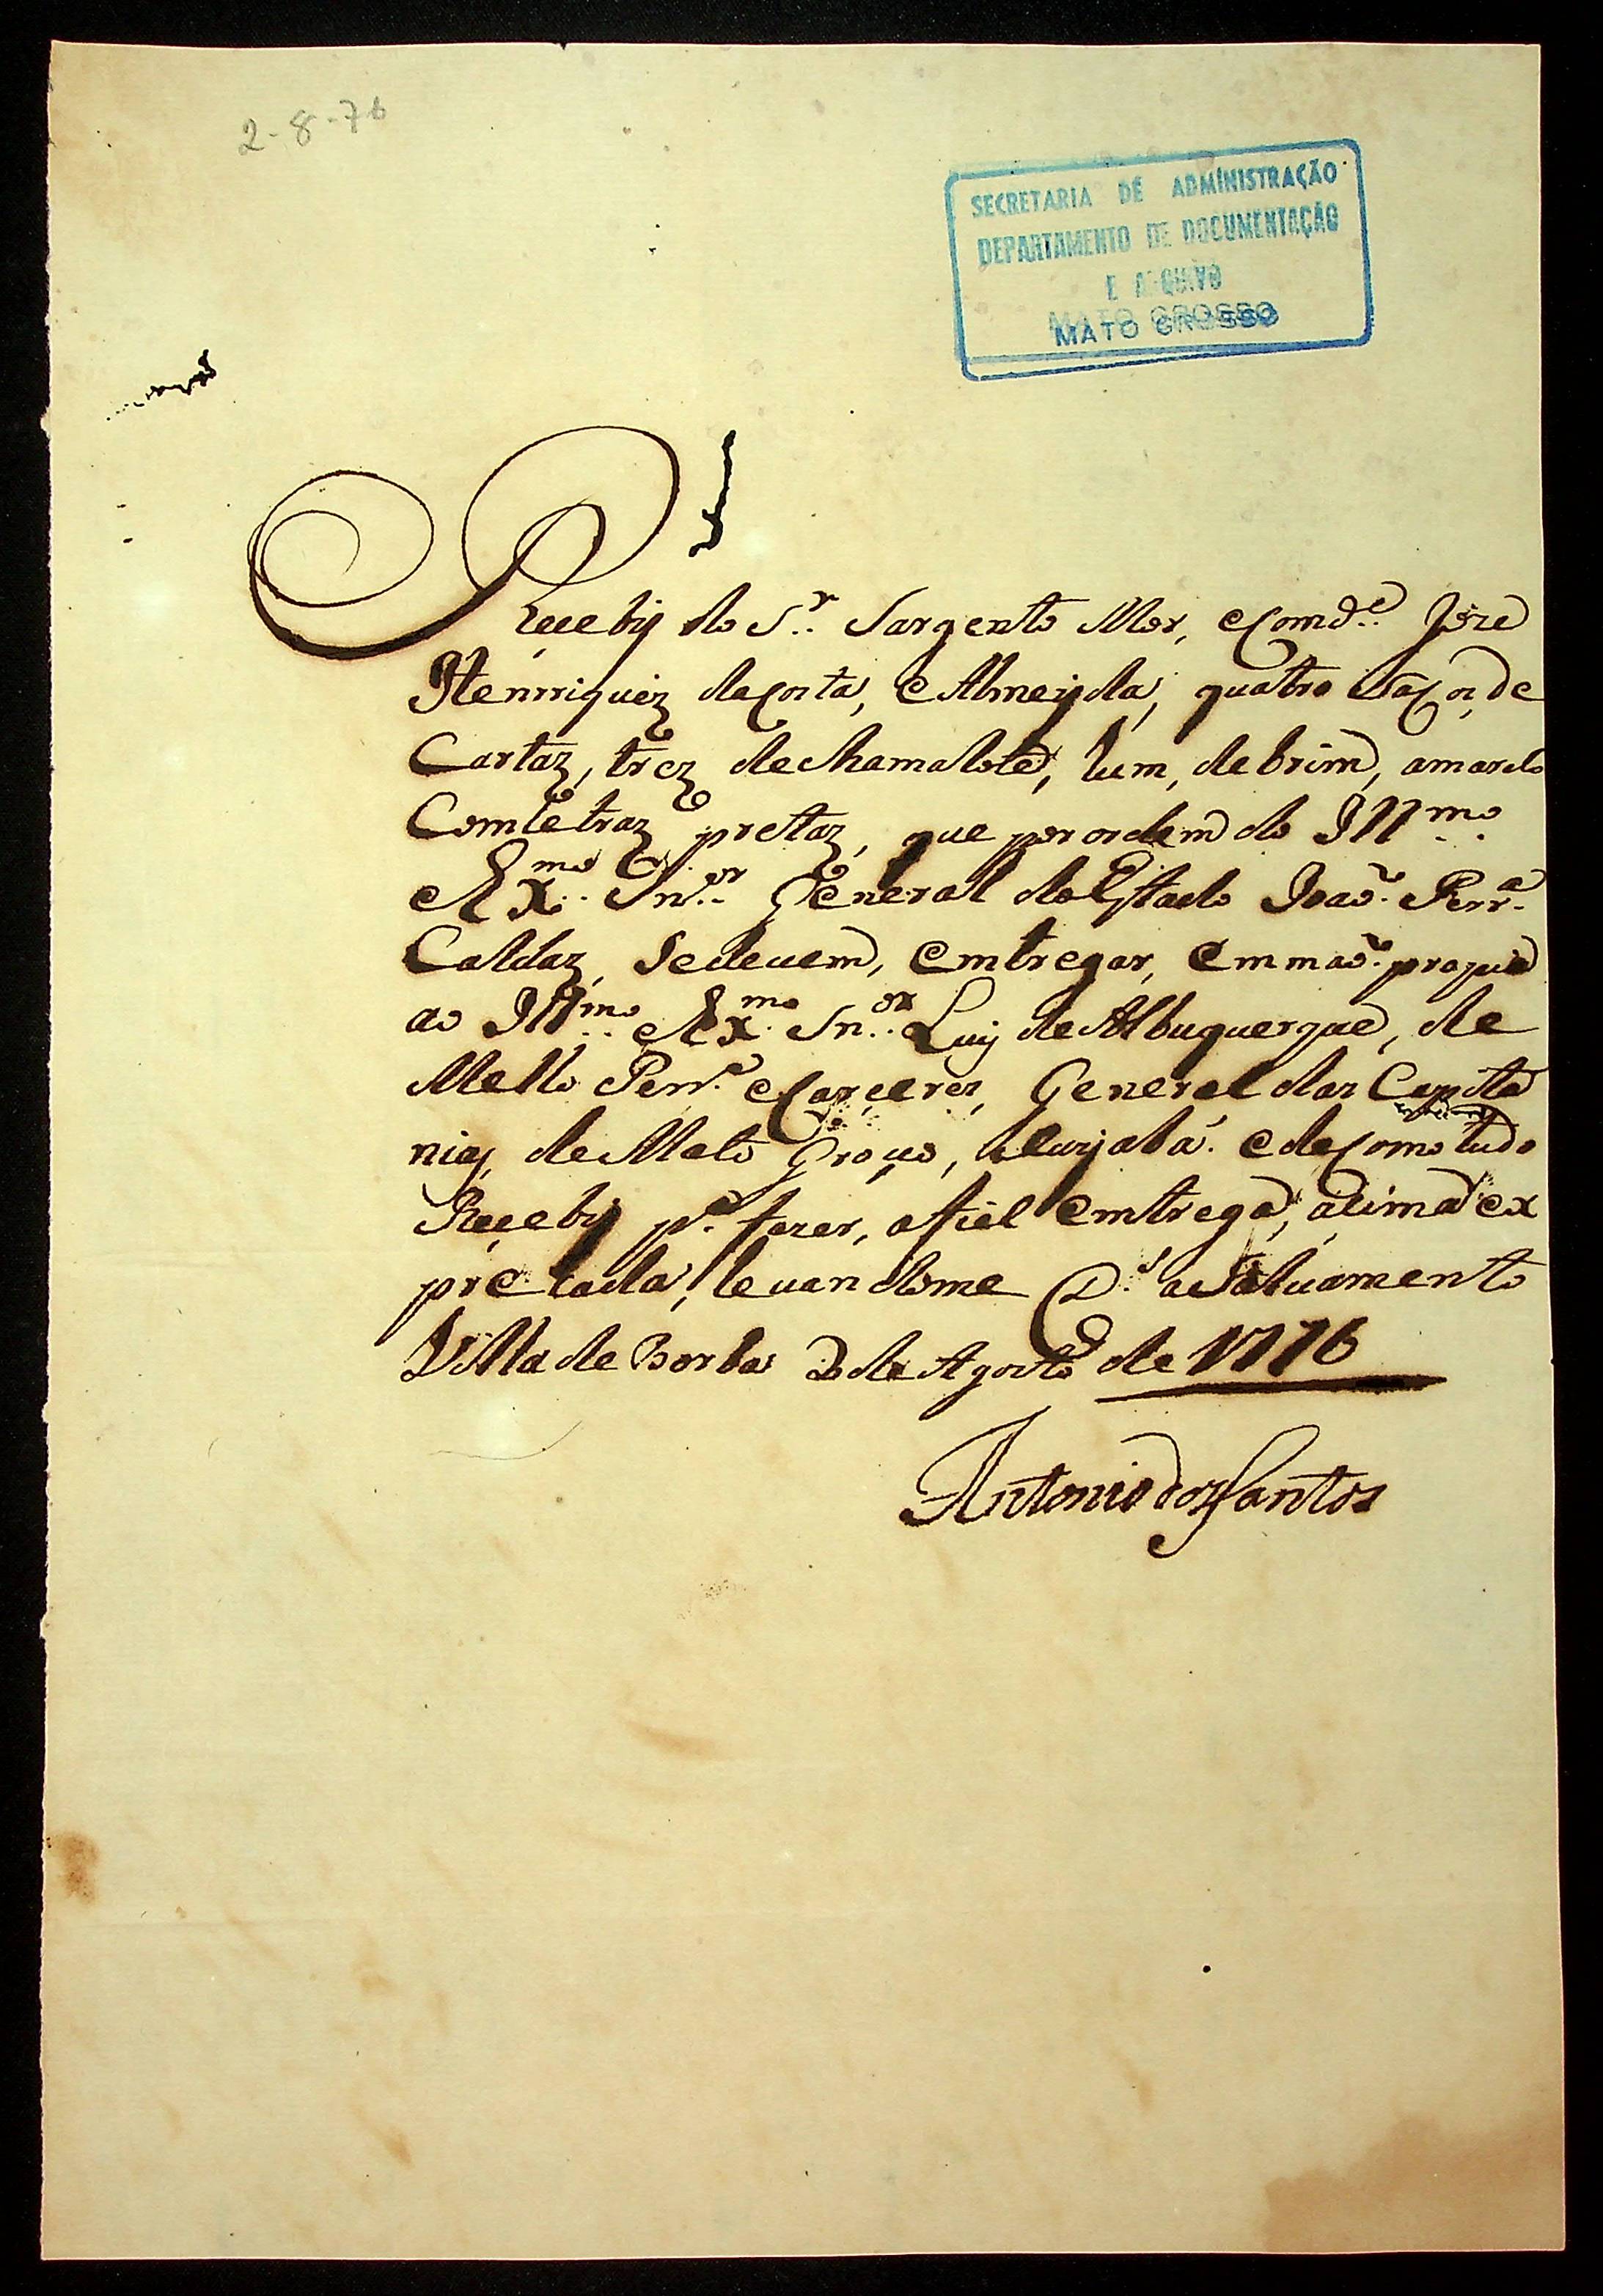 2-8-76
SECRETARIA DE ADMINISTRAÇÃO
DEPARTAMENTO DE DOCUMENTAÇÃO
E ARQUIVO
MATO GROSSO
Reçeby do S.r Sargento Mor, eComd.e Joze
Henrriquiz daCosta, eAlmeyda, quatro Sacos, de
Cartaz, trez dechamalote, hum, debrim, amarelo
Comletraz pretaz, que porordem do Ill.mo
eEx.mo Sn.or General doEstado Joaõ Perr.a
Caldaz, Sedevem, Emtregar, Emmaõ propia
ao Ill.mo eEx.mo Sn.or Luiz deAlbuquerque, de
Mello Perr.a eCaçerez, General das Capita
nias, deMato Groço, eCuyabá. edeComo tudo
Reçeby p.a fazer, afiel Emtrega, açima ex
preçada, levandome D.s aSalvamento
Villa de Borba 2 de Agosto de 1776
Antonio dos Santos